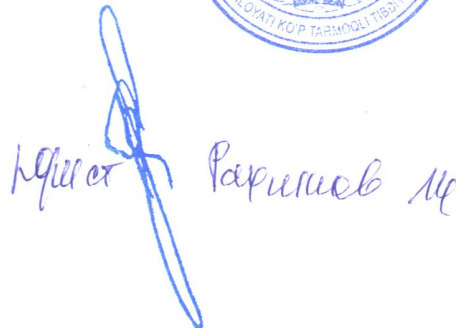 LOYATI KO'P TARMOQLI TIBBI
Юрист Рахимов